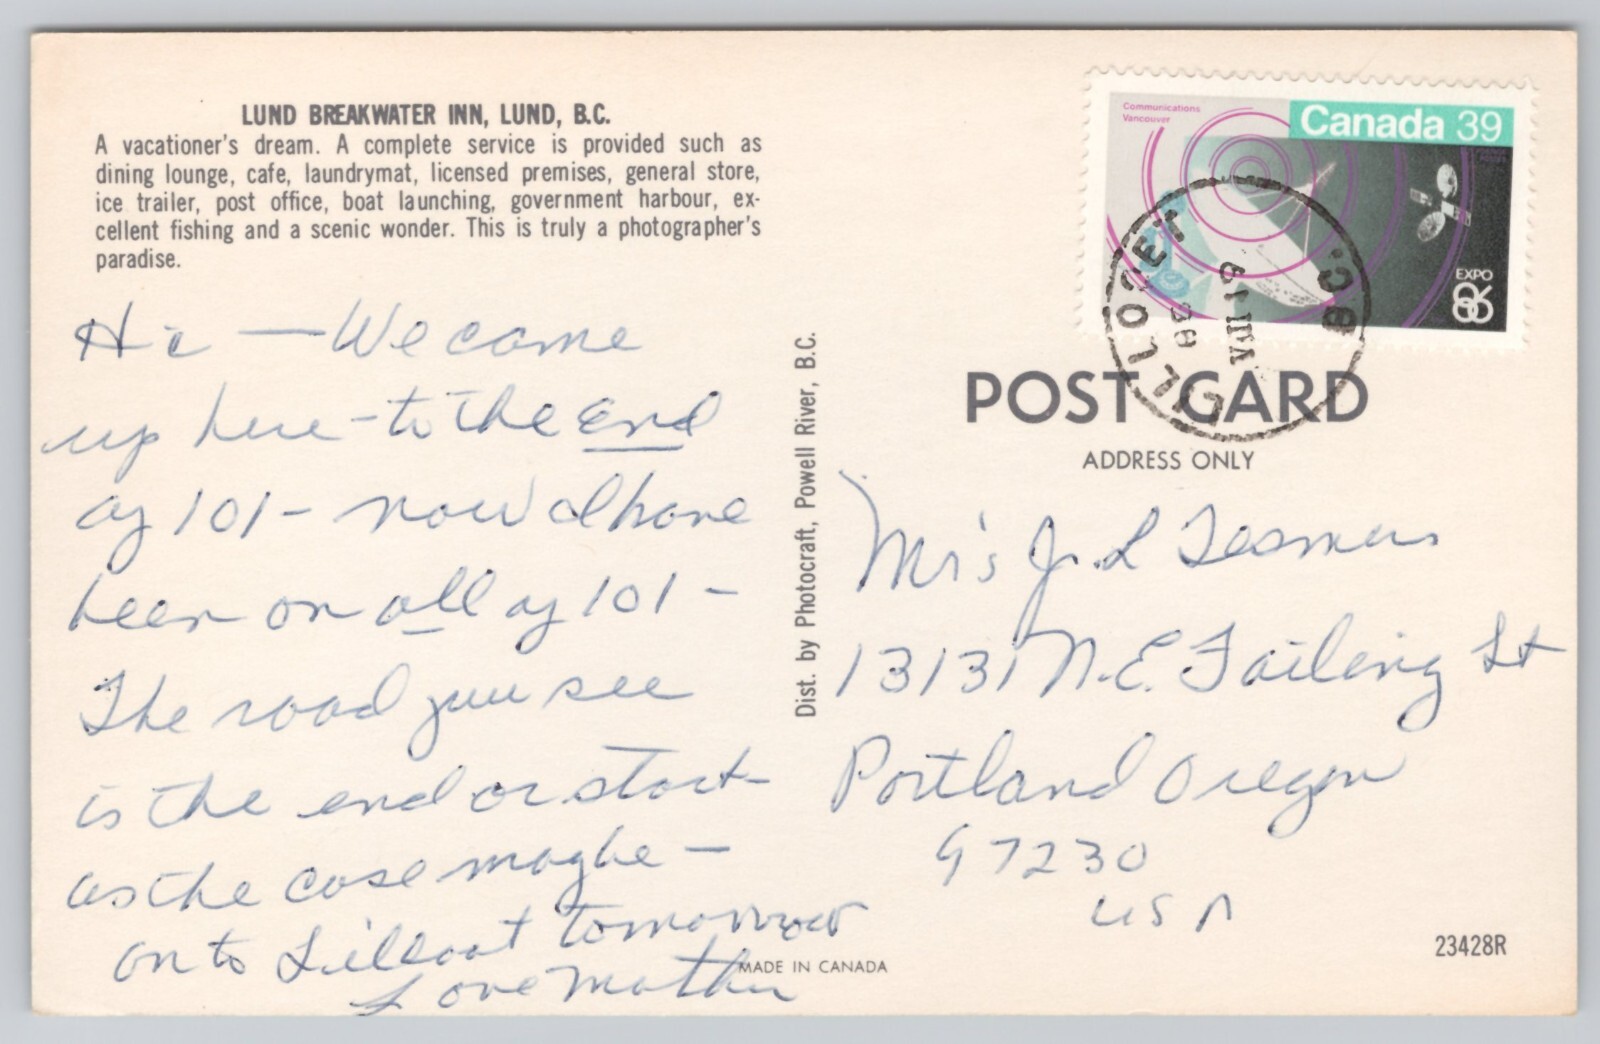 LUND BREAKWATER INN, LUND, B.C.
A vacationer's dream. A complete service is provided such as
dining lounge, cafe, laundrymat, licensed premises, general store,
ice trailer, post office, boat launching, government harbour, ex-
cellent fishing and a scenic wonder. This is truly a photographer's
paradise.
Hi — We came
up here - to the End
of 101 - now I have
been on all of 101 -
The road you see
is the end or start
as the case maybe -
on to tomorrow
Love Mother
Dist. by Photocraft, Powell River, B.C.
MADE IN CANADA
Communications
Vancouver
Canada 39
EXPO
86
B.C.
VIII
POST CARD
ADDRESS ONLY
Mrs J. L
13131 N.E. Failing St
Portland Oregon
97230
USA
23428R